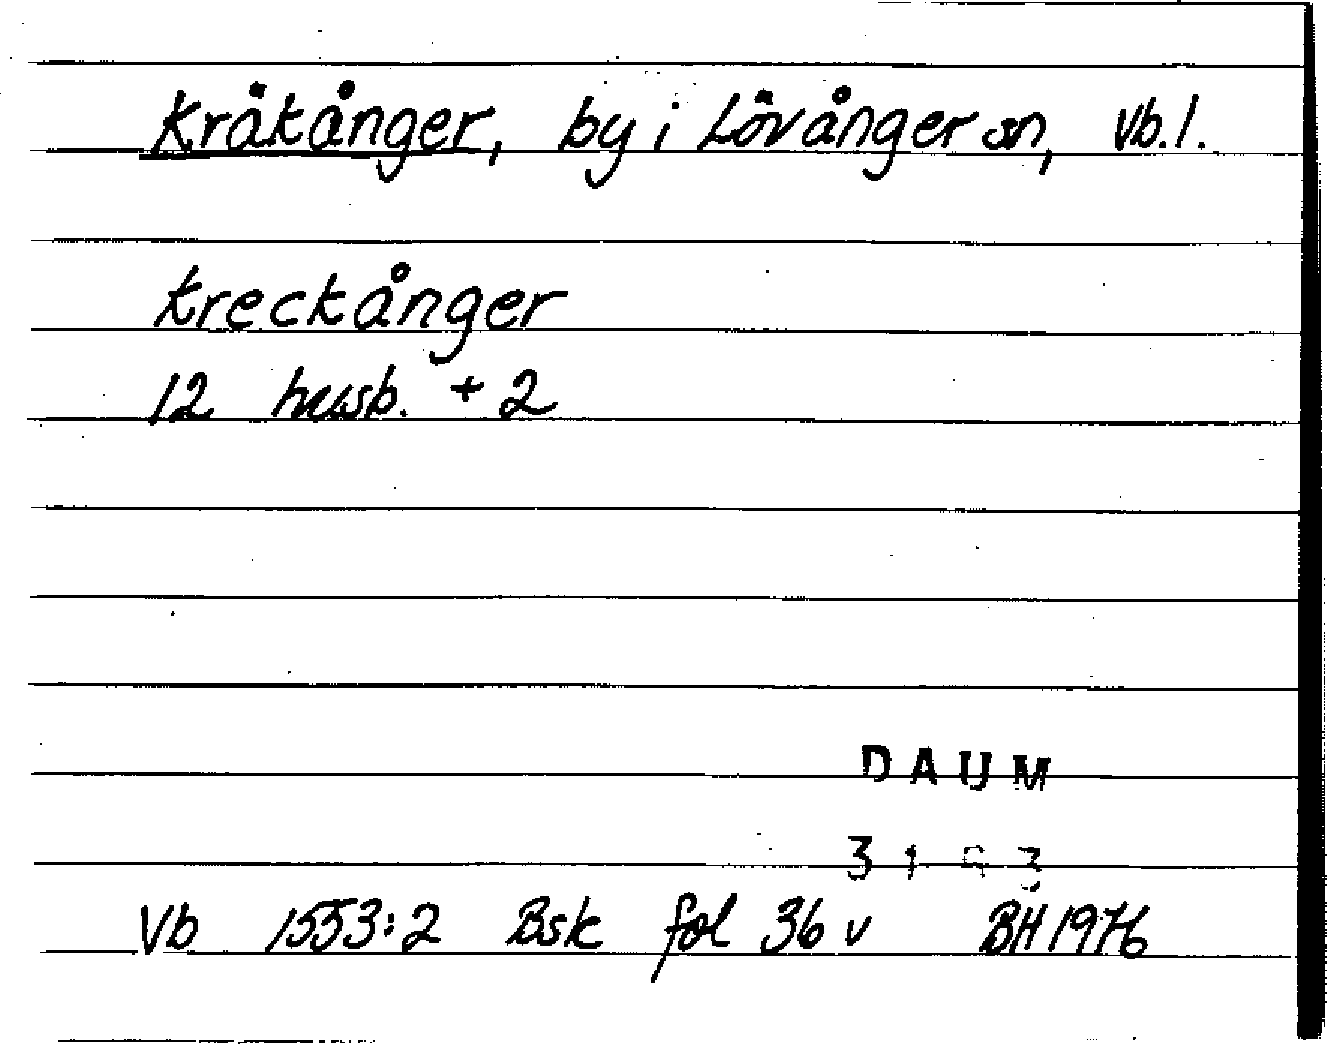 Kräkånger, by i Lövånger sn, Vb.l.
Kreckånger
12 husb. + 2
DAUM
Vb 1553:2 Bsk fol 36 v BH 1976